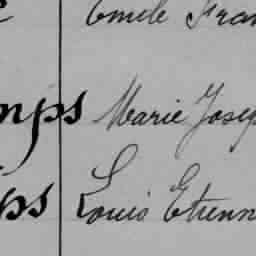 Emile Fran
mps Marie Josep
ps Louis Etienn